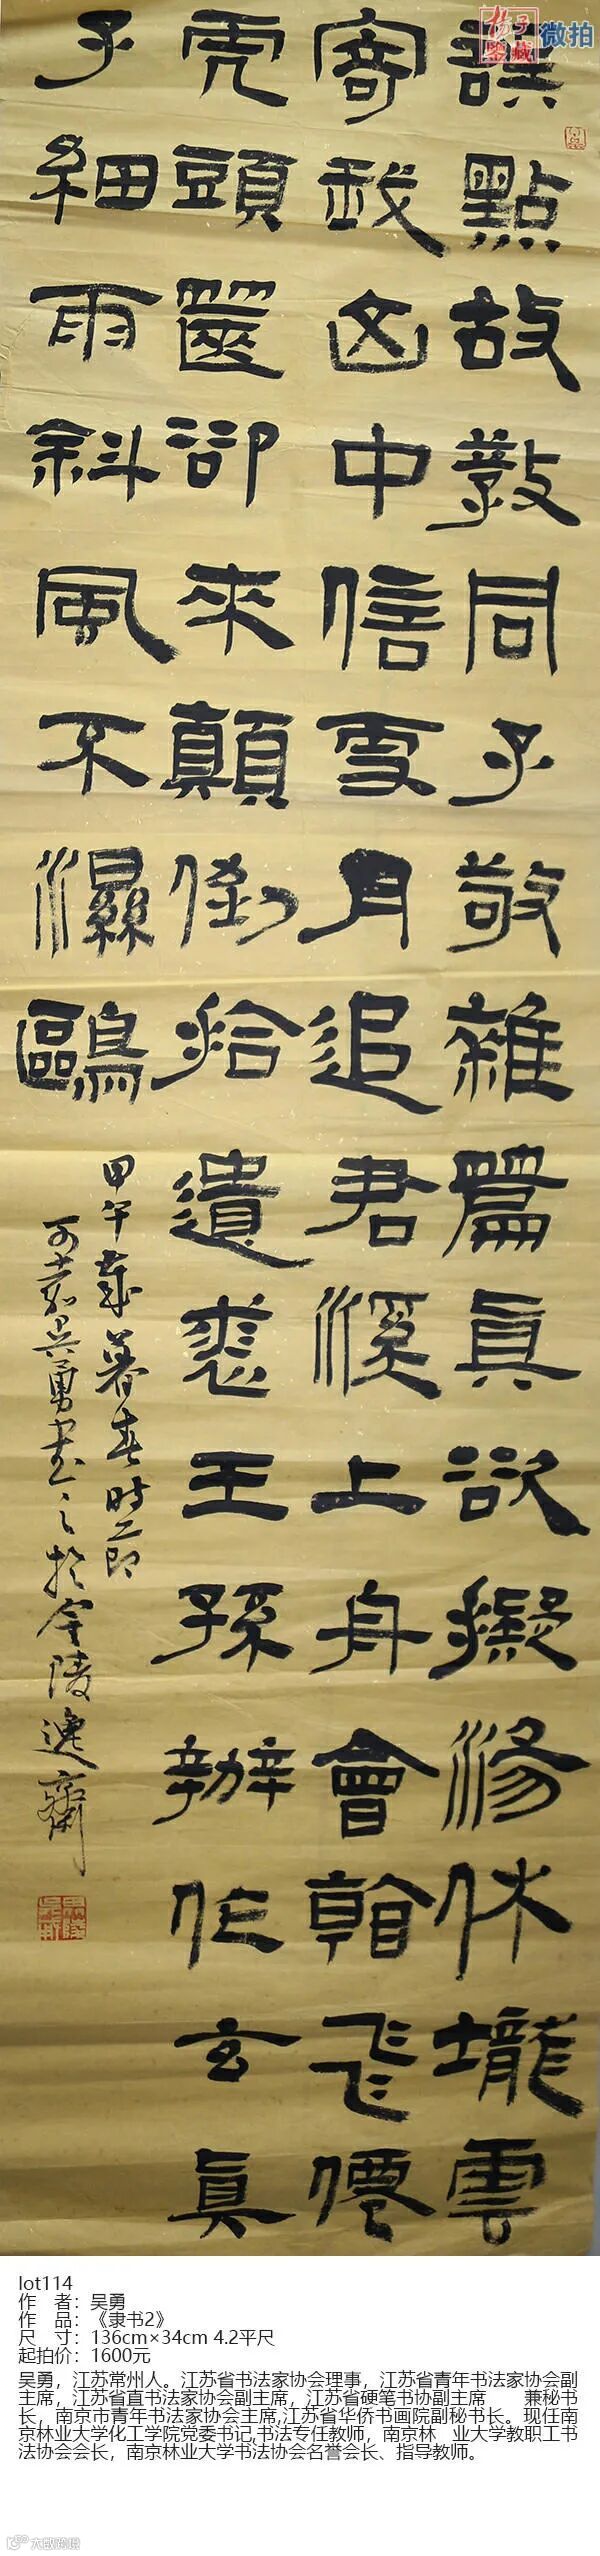 扬子
鑒藏
微拍
誤點故教同子敬雜篇真欲擬湯休壠雲
寄我山中信雪月追君溪上舟會看飛僊
虎頭篋卻來顛倒拾遺裘王孫辦作玄真
子細雨斜風不濕鷗
甲午歲暮春時節
可嘉吳勇書之於金陵逸齋
lot114
作 者：吴勇
作 品：《隶书2》
尺 寸：136cm×34cm 4.2平尺
起拍价：1600元
吴勇，江苏常州人。江苏省书法家协会理事，江苏省青年书法家协会副
主席，江苏省直书法家协会副主席，江苏省硬笔书协副主席 兼秘书
长，南京市青年书法家协会主席,江苏省华侨书画院副秘书长。现任南
京林业大学化工学院党委书记,书法专任教师，南京林 业大学教职工书
法协会会长，南京林业大学书法协会名誉会长、指导教师。